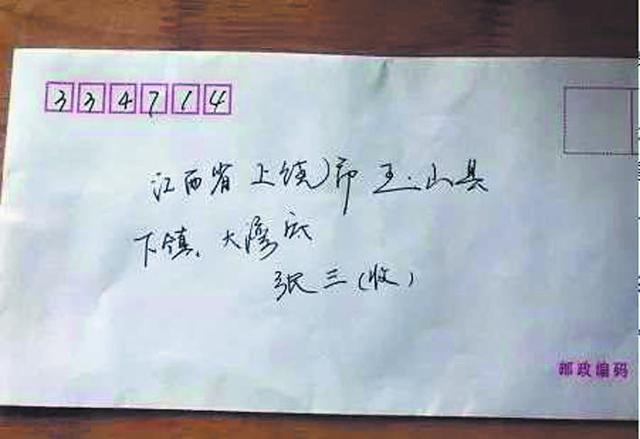 334714
江西省上饶市玉山县
下镇、大
张三(收)
邮政编码